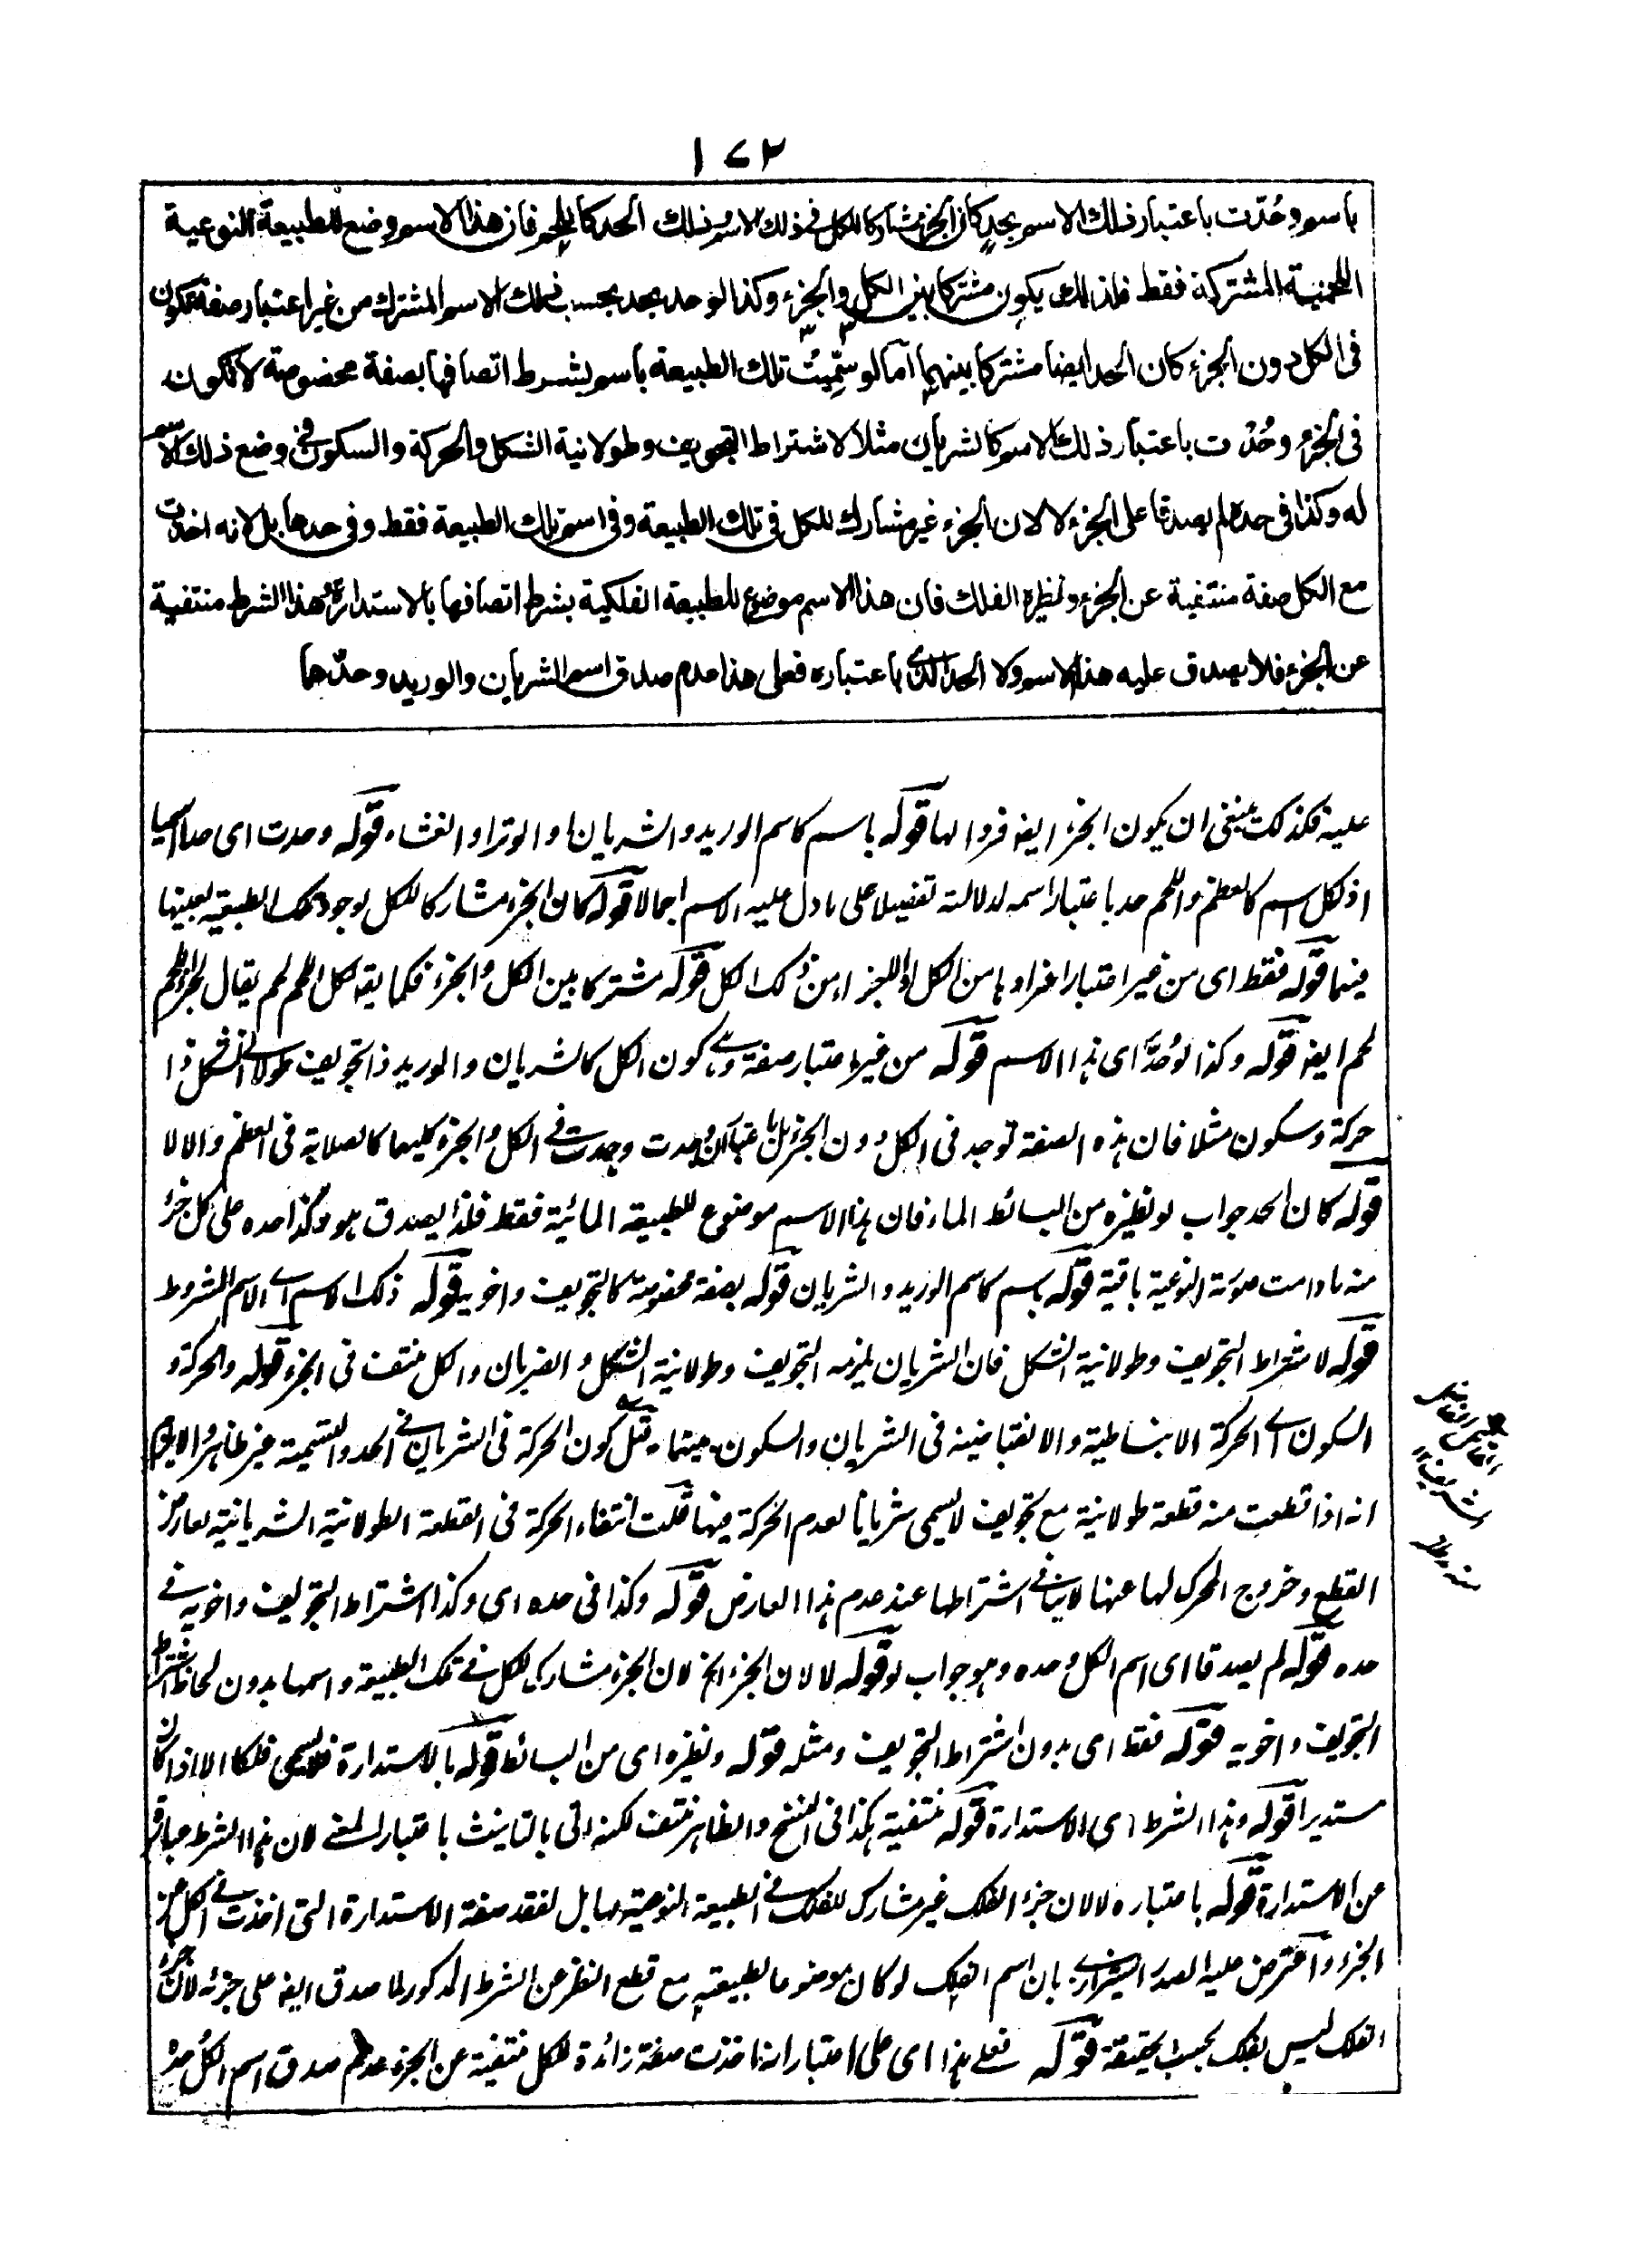 ١٧٢
باسم وحُدّت باعتبار ذلك الاسم بحدٍ كان الجزء مشاركا للكل فى ذلك الاسم وذلك الحد كاللحم فان هذا الاسم وضع للطبيعة النوعية
اللحمية المشتركة فقط فلذلك يكون مشتركا بين الكل والجزء وكذا لو حد بحد بحسب ذلك الاسم المشترك من غير اعتبار صفة تكون
فى الكل دون الجزء كان الحد ايضا مشتركا بينهما اما لو سُمّيت تلك الطبيعة باسم بشرط اتصافها بصفة مخصوصة لا تكون
فى الجزء وحُدّت باعتبار ذلك الاسم كالشريان مثلا لاشتراط التجويف وطولانية الشكل والحركة والسكون فى وضع ذلك الاسم
له وكذا فى حده لم يصدقا على الجزء لا لان الجزء غير مشارك للكل فى تلك الطبيعة وفى اسم تلك الطبيعة فقط وفى حدها بل لانه اخذت
مع الكل صفة منتفية عن الجزء ونظيره الفلك فان هذا الاسم موضوع للطبيعة الفلكية بشرط اتصافها بالاستدارة وهذا الشرط منتفية
عن الجزء فلا يصدق عليه هذا الاسم ولا الحد الذى باعتباره فعلى هذا عدم صدق اسم الشريان والوريد وحدّهما
عليه فكذلك ينبغى ان يكون الجزء ايضہ فردا لها قوله باسم كاسم الوريد والشريان والوتر او الغشاء قوله وحدت اى حدا اسميا
اذ لكل اسم كالعظم واللحم حد باعتبار اسمہ لدلالته تفصيلا على ما دل عليه الاسم اجمالا قوله كان الجزء مشاركا للكل لوجود تلك الطبيعة بعينها
فيهما قوله فقط اى من غير اعتبار افرادها من الكل او الجزء من ذلك الكل قوله مشتركا بين الكل والجزء فكما يقہ لكل اللحم لحم يقال لجزء اللحم
لحم ايضہ قوله وكذا لو حُدّ اى هذا الاسم قوله من غير اعتبار صفة وهى كون الكل كالشريان والوريد ذا تجويف طولانى الشكل ذا
حركة وسكون مثلا فان هذه الصفة توجد فى الكل دون الجزء بل باعتبار ان وجدت وجدت فى الكل والجزء كليهما كالصلابة فى العظم والا لا
قوله كان الحد جواب لو نظيره من البسائط الماء فان هذا الاسم موضوع للطبيعة المائية فقط فلذا يصدق هو وكذا حده على كل جزء
منه ما دامت صورته النوعية باقية قوله باسم كاسم الوريد والشريان قوله بصفة مخصوصة كالتجويف واخويه قوله ذلك الاسم اے الاسم المشروط
قوله لاشتراط التجويف وطولانية الشكل فان الشريان يلزمه التجويف وطولانية الشكل والضربان والكل منتف فى الجزء قوله والحركة و
السكون اے الحركة الانبساطية والانقباضية فى الشريان والسكون بينهما قيل كون الحركة فى الشريان فى الحد والتسمية غير ظاهر والا لزم
انه اذا قطعت منه قطعة طولانية مع تجويف لا يسمى شريانا لعدم الحركة فيها قلت انتفاء الحركة فى القطعة الطولانية الشريانية لعارض
القطع وخروج المحرك لها عنها لا ينافى اشتراطها عند عدم هذا العارض قوله وكذا فى حده اى وكذا اشتراط التجويف واخويه فى
حده قوله لم يصدقا اى اسم الكل وحده وهو جواب لو قوله لا لان الجزء الخ لان الجزء مشارك للكل فى تلك الطبيعة واسمها بدون لحاظ اشتراط
التجويف واخويه قوله فقط اى بدون اشتراط التجويف ومثله قوله ونظيره اى من البسائط قوله بالاستدارة فلا يسمى فلكا الا اذا كان
مستديرا قوله وهذا الشرط اى الاستدارة قوله منتفية هكذا فى النسخ والظاهر منتف لكنه اتى بالتانيث باعتبار المعنى لان هذا الشرط عبارة
عن الاستدارة قوله باعتباره لا لان جزء الفلك غير مشارك للفلك فى الطبيعة النوعية بل لفقد صفة الاستدارة التى اخذت فى الكل عن
الجزء واعترض عليه الصدر الشيرازى بان اسم الفلك لو كان موضوعا لطبيعته مع قطع النظر عن الشرط المذكور لما صدق ايضہ على جزئه لان جزء
الفلك ليس بفلك بحسب الحقيقة قوله فعلے هذا اى على اعتبار انه اخذت صفة زائدة للكل منتفية عن الجزء عدم صدق اسم الكل وحده